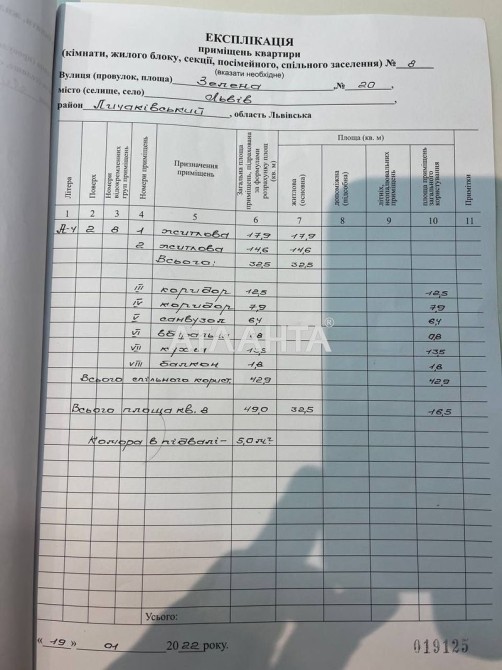 ЕКСПЛІКАЦІЯ
приміщень квартири
(кімнати, жилого блоку, секції, посімейного, спільного заселення) № 8
(вказати необхідне)
Вулиця (провулок, площа) Зелена, № 20,
місто (селище, село) Львів,
район Личаківський, область Львівська
Літера
Поверх
Номери відокремлених груп приміщень
Номери приміщень
Призначення приміщень
Загальна площа приміщень, підрахована за формулами розрахунку площ (кв. м)
Площа (кв. м)
житлова (основна)
допоміжна (підсобна)
літніх, неопалювальних приміщень
площа приміщень загального користування
Примітки
1 2 3 4 5 6 7 8 9 10 11
А-4 2 8 1 житлова 17,9 17,9
2 житлова 14,6 14,6
Всього: 32,5 32,5
III коридор 12,5 12,5
IV коридор 7,9 7,9
V санвузол 6,4 6,4
VI вбиральня 0,8
VII кухня 13,5
VIII балкон 1,8 1,8
Всього спільного корист. 42,9 42,9
Всього площа кв. 8 49,0 32,5 16,5
Комора в підвалі - 5,0 м²
АТЛАНТА®
Усього:
« 19 » 01 2022 року.
019125